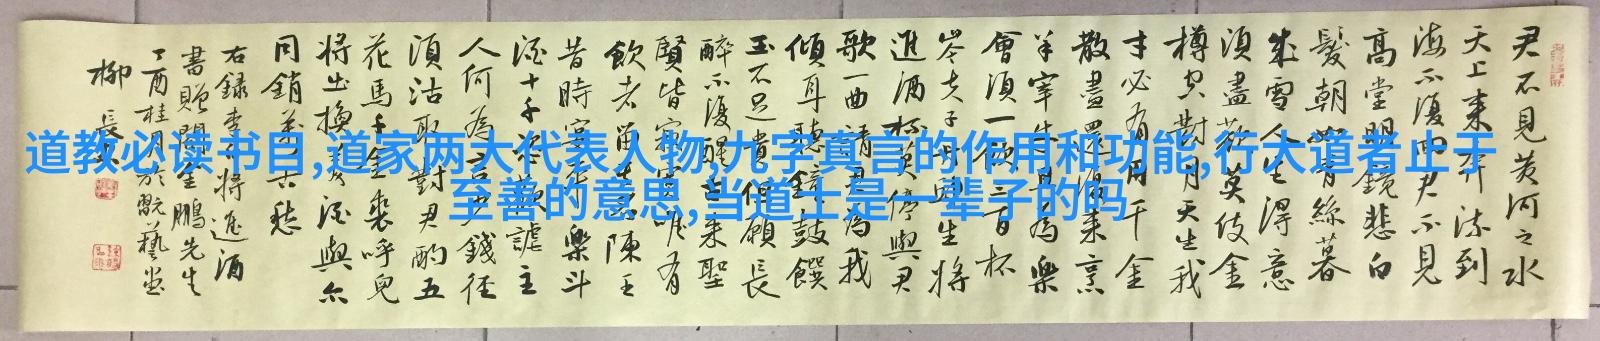 道教必读书目,道家两大代表人物,九字真言的作用和功能,行大道者止于
至善的意思,当道士是一辈子的吗
君不見黄河之水
天上来奔流到
海不復回君不見
高堂明鏡悲白
髮朝如青絲暮
成雪人生得意
須盡歡莫使金
樽空對月天生我
才必有用千金
散盡還復来烹
羊宰牛且為樂
會須一飲三百杯
岑夫子丹丘生將
進酒杯莫停與君
歌一曲請君為我
傾耳聽鐘鼓饌
玉不足貴但願長
醉不復醒古来聖
賢皆寂寞唯有
飲者留其名陳王
昔時宴平樂斗
酒十千恣歡謔主
人何為言少錢径
須沽取對君酌五
花馬千金裘呼兒
將出換美酒與尔
同銷萬古愁
右録李白將進酒
書贈金鵬先生
丁酉桂月於翫藝堂
柳長